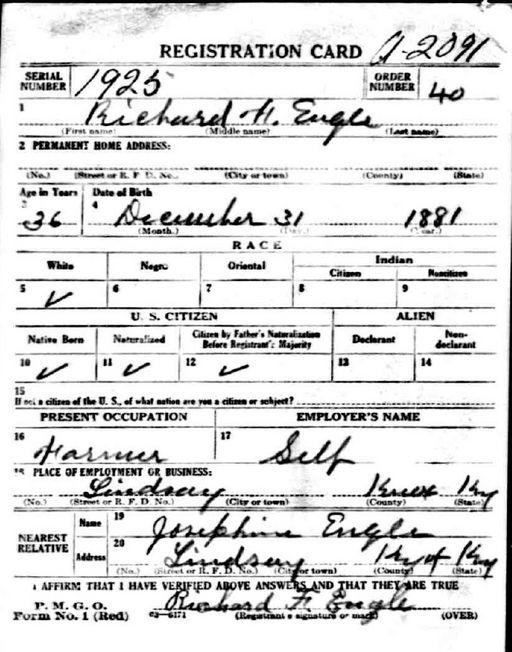 REGISTRATION CARD A-2091
SERIAL NUMBER 1925 ORDER NUMBER 40
1 Richard H. Engle
(First name) (Middle name) (Last name)
2 PERMANENT HOME ADDRESS:
(No.) (Street or R. F. D. No.) (City or town) (County) (State)
Age in Years Date of Birth
3 36 4 December 31 1881
(Month.) (Day.) (Year.)
RACE
White Negro Oriental Indian
Citizen Noncitizen
5 ✓ 6 7 8 9
U. S. CITIZEN ALIEN
Native Born Naturalized Citizen by Father's Naturalization Before Registrant's Majority Declarant Non-declarant
10 ✓ 11 ✓ 12 ✓ 13 14
15
If not a citizen of the U. S., of what nation are you a citizen or subject?
PRESENT OCCUPATION EMPLOYER'S NAME
16 Farmer 17 Self
18 PLACE OF EMPLOYMENT OR BUSINESS:
Lindsay Knox Ky
(No.) (Street or R. F. D. No.) (City or town) (County) (State)
NEAREST RELATIVE Name 19 Josephine Engle
Address 20 Lindsay Ky
(No.) (Street or R. F. D. No.) (City or town) (County) (State)
I AFFIRM THAT I HAVE VERIFIED ABOVE ANSWERS AND THAT THEY ARE TRUE
P. M. G. O. Richard F. Engle
Form No. 1 (Red) 03-6171 (Registrant's signature or mark) (OVER)